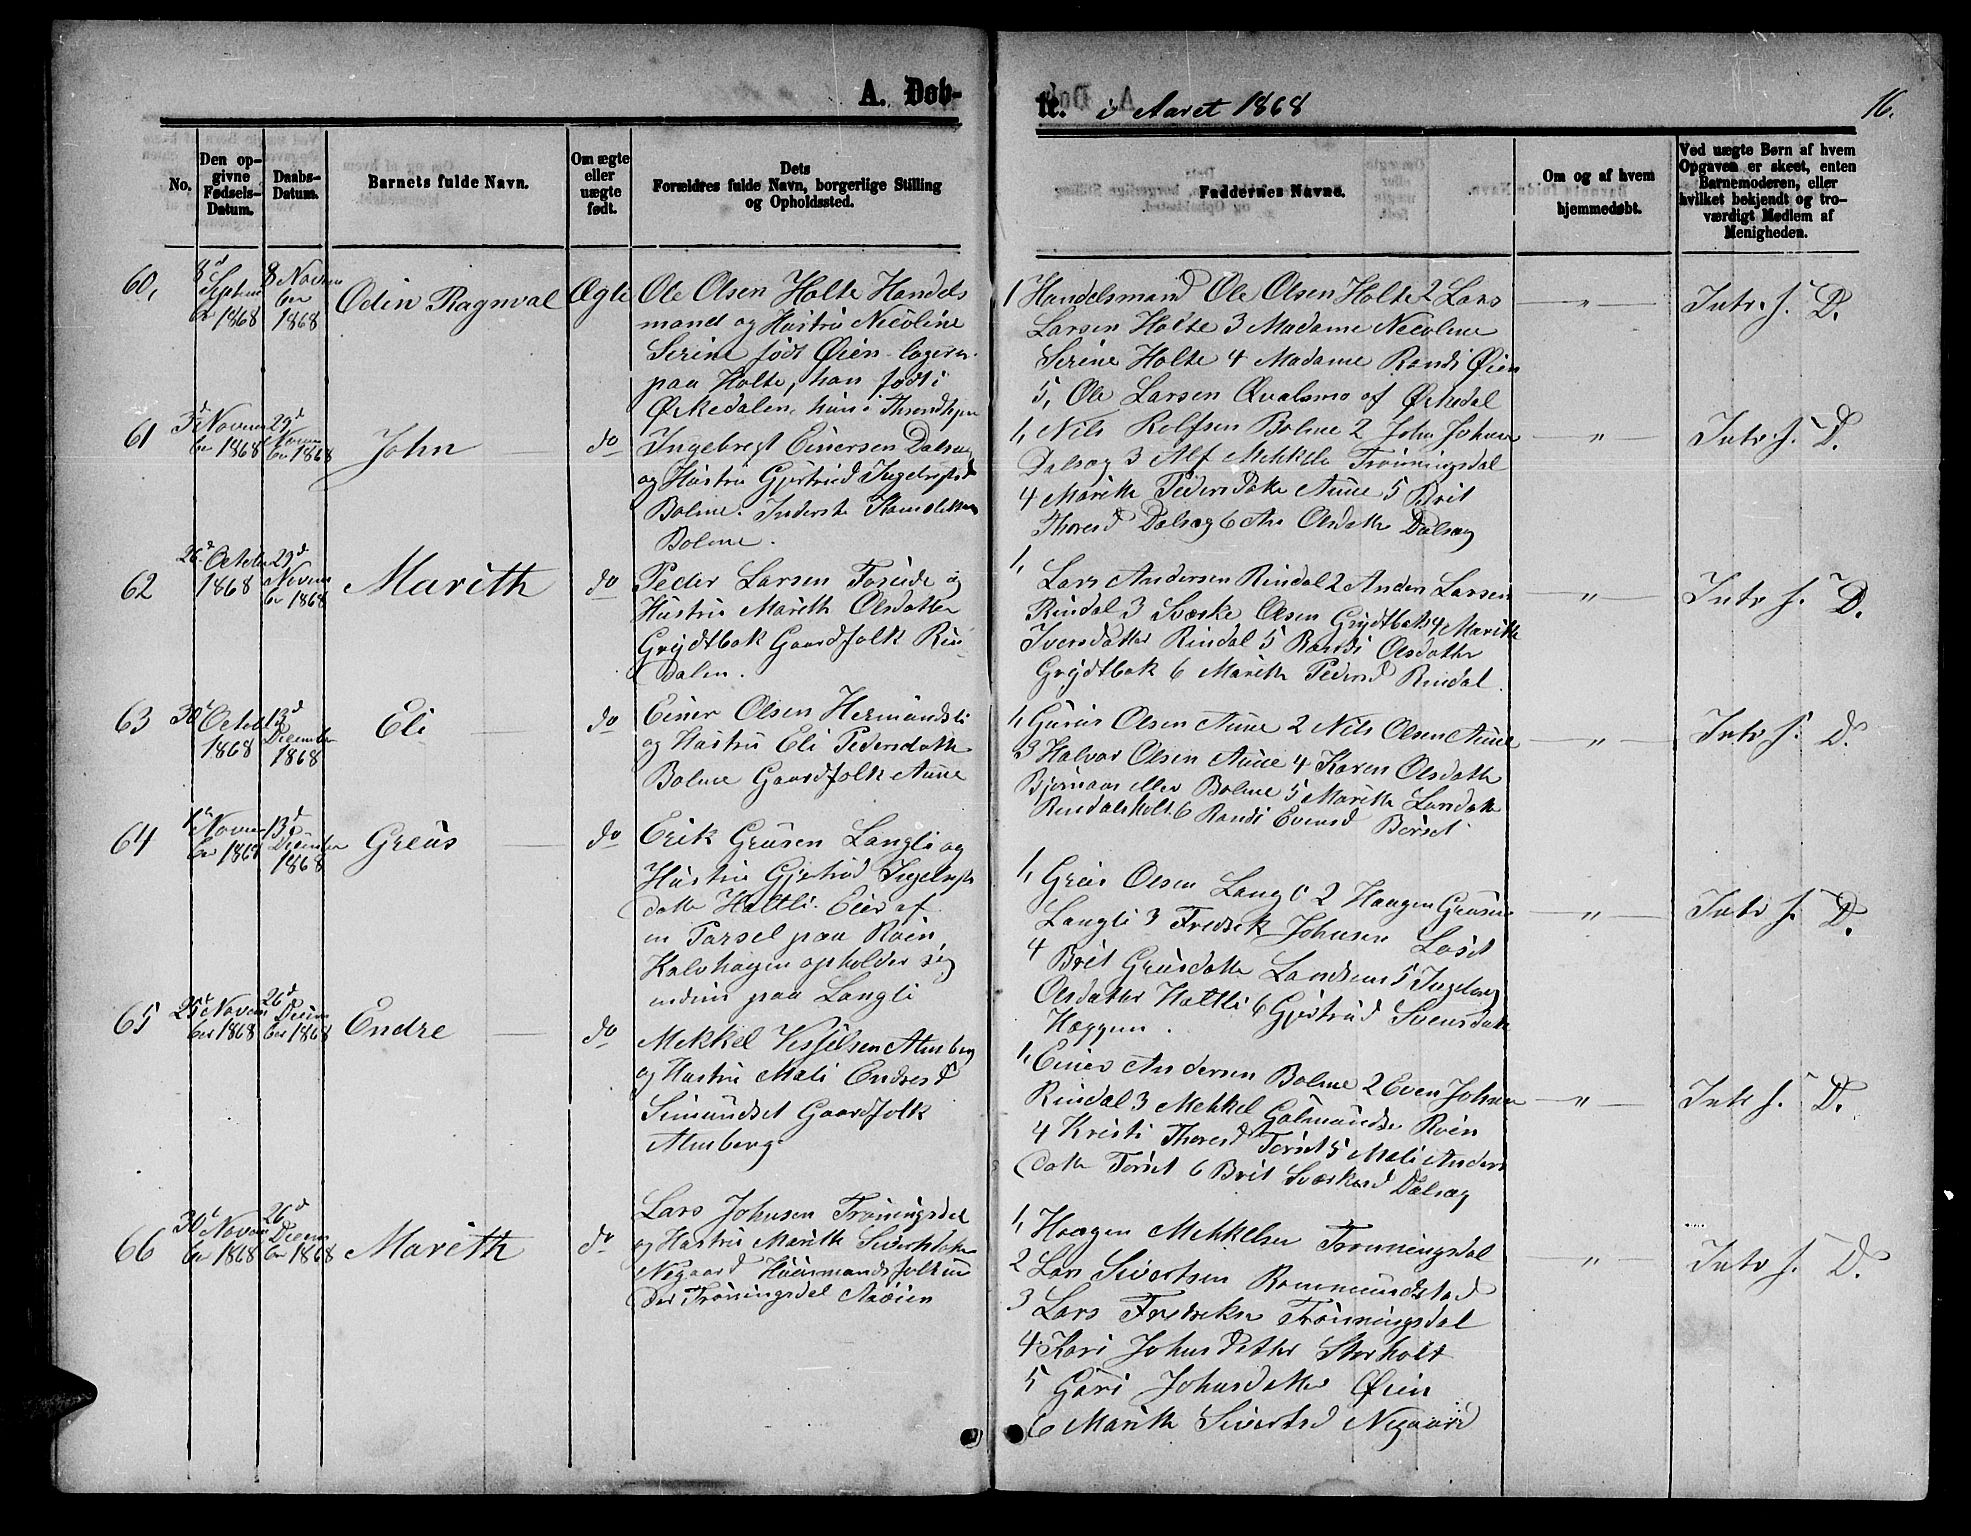 A. Døb-
te. i Aaret 1868
16.
No.
Den op-
givne
Fødsels-
Datum.
Daabs-
Datum.
Barnets fulde Navn.
Om ægte
eller
uægte
født.
Dets
Forældres fulde Navn, borgerlige Stilling
og Opholdssted.
Faddernes Navne.
Om og af hvem
hjemmedøbt.
Ved uægte Børn af hvem
Opgaven er skeet, enten
Barnemoderen, eller
hvilket bekjendt og tro-
værdigt Medlem af
Menigheden.
60,
8d
Septem
br 1868
8 Novem
ber
1868
Odin Ragnval
Ægte
Ole Olsen Holte Handels
mand og Hustru Nicoline
Serine født Øien
paa Holte, han født i
Ørkedalen, hun i Throndhjem
1, Handelsmand Ole Olsen Holte 2 Lars
Larsen Holte 3 Madame Nicoline
Serine Holte 4 Madame Randi Øien
5, Ole Larsen Qvalsmo af Ørkedal
"
Intr. f. D.
61
3d Novem
ber 1868
29d
Novem
ber 1868
John
do
Ingebregt Einersen Dalsæg
og Hustru Gjertrud Ingebrigtsd
Bolme. Inderste
Bolme.
1, Nils Rolfsen Bolme 2 John Johnsen
Dalsæg 3 Alf Mekkels Trønningsdal
4 Marith Pedersdatter Aune 5 Brit
Thoresd Dalsæg 6 Ane Olsdatter Dalsæg
"
Intr. f. D.
62
26d October
1868
29d
Novem
ber 1868
Marith
do
Peder Larsen Foseide og
Hustru Marith Olsdatter
Grydtbak Gaardfolk Rin
dalen.
1,
Lars Andersen Rindal 2 Anders Larsen
Rindal 3 Sværke Olsen Grydtbak 4 Marith
Iversdatter Rindal 5 Randi Olsdatter
Grydtbak 6 Marith Pedersd Rindal.
"
Intr f. D.
63
30d October
1868
13d
December
1868
Eli
do
Einer Olsen Hermundsli
og Hustru Eli Pedersdatter
Bolme Gaardfolk Aune
1, Guru Olsen Aune 2 Nils Olsen Aune
3 Halvor Olsen Aune 4 Karen Olsdatter
Bjørnaas eller Bolme 5 Marith Larsdatter
Rindalsholt 6 Randi Evensd Børset
"
Intr f. D.
64
1d Novem
ber 1868
13d
December
1868
Greus
do
Erik Greusen Langli og
Hustru Gjertrud Ingebrigts
datter Haltli. Eier af
en Parsel paa Røen,
Kalvhagen opholder sig
endnu paa Langli
1, Greus Olsen Langli 2 Haagen Greusen
Langli 3 Fredrik Johnsen Løset
4 Brit Greusdatter Landsem 5 Ingeborg
Olsdatter Haltli 6 Gjertrud Svensdatter
Heggem.
"
Intr f. D.
65
25d Novem
ber 1868
26d
Decem
ber 1868
Endre
do
Mekkel Vessilsen Almberg
og Hustru Mali Endresd
Simundset Gaardfolk
Almberg
1, Einer Andersen Bolme 2 Even Johnsen
Rindal 3 Mekkel Galmundsen Røen
4 Kristi Thoresd Torset 5 Mali Anders
datter Torset 6 Brit Sværkesd Dalsæg
"
Intr f. D.
66
30d Novem
ber 1868
26d
Decem
ber 1868
Marith
do
Lars Johnsen Trønningsdal
og Hustru Marith Sivertsdatter
Negaard Huusmandsfolk un
der Trønningsdal Aaøien
1, Haagen Mekkelsen Trønningsdal
2 Lars Sivertsen Rommundstad
3 Lars Fredriksen Trønningsdal
4 Kari Johnsdatter Storholt
5 Guri Johnsdatter Øien
6 Marith Sivertsd Negaard
"
Intr f. D.